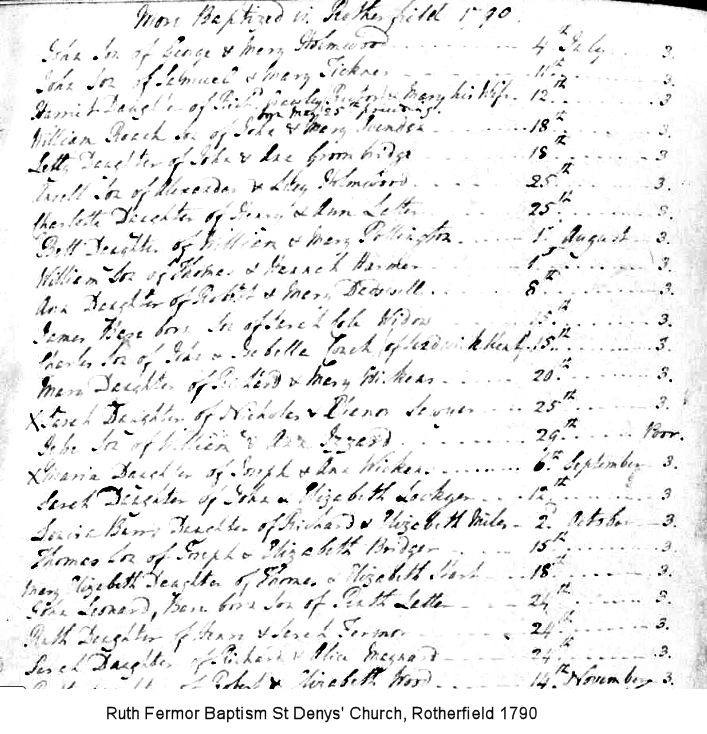 More Baptized in Rotherfield 1790.
John Son of George & Mary Holmwood 4th July 3.
John Son of Samuel & Mary Tickner 11th 3.
Harriet Daughter of Richd & Mary his Wife 12th 3
born May 25th preceding
William Roach Son of John & Mary 18th 3.
Letty Daughter of John & Ann Groombridge 18th 3.
Son of Alexander & Lucy Holmwood 25th 3.
Charlotte Daughter of Henry & Ann Letter 25th 3.
Bett Daughter of William & Mary Pollington 1st August 3.
William Son of Thomas & Hannah Harmer 1st 3.
Ann Daughter of Robert & Mary 8th 3.
James, Base born Son of Sarah Cole Widow 15th 3.
Charles Son of John & Isabella 15th 3.
Mary Daughter of Richard & Mary Wickens 20th 3.
X Sarah Daughter of Nicholas & Elenor Sawyer 25th 3.
Son of William & Ann Izzard 29th Poor.
X Maria Daughter of Joseph & Ann Wicken 6th September 3.
Sarah Daughter of John & Elizabeth Lockyer 12th 3
Louisa Daughter of Richard & Elizabeth Miles 2d October 3.
Thomas Son of Joseph & Elizabeth Bridger 15th 3.
Mary Elizabeth Daughter of Thomas & Elizabeth 18th 3.
John Leonard, Base born Son of Ruth Letter 24th 3.
Ruth Daughter of Henry & Sarah Fermor 24th 3.
Sarah Daughter of Richard & Alice Maynard 24th 3.
Daughter of Robert & Elizabeth Wood 14th November 3
Ruth Fermor Baptism St Denys' Church, Rotherfield 1790